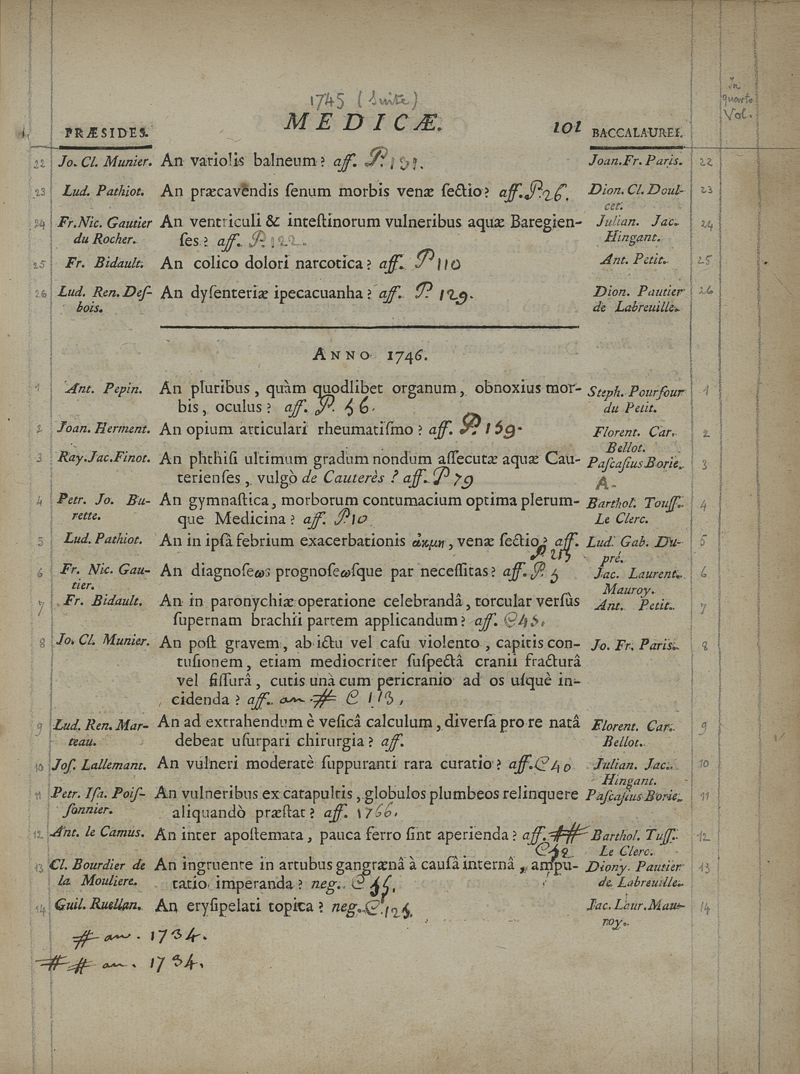 1745 (Suite)
In quarto Vol.
MEDICÆ. 101
PRÆSIDES. BACCALAUREI.
22 Jo. Cl. Munier. An variolis balneum? aff. Joan. Fr. Paris. 22
23 Lud. Pathiot. An præcavendis ſenum morbis venæ ſectio? aff. P. 26. Dion. Cl. Doul- 23
cet.
24 Fr. Nic. Gautier An ventriculi & inteſtinorum vulneribus aquæ Baregien- Julian. Jac. 24
du Rocher. ſes? aff. P. 122. Hingant.
25 Fr. Bidault. An colico dolori narcotica? aff. P 110 Ant. Petit. 25
26 Lud. Ren. Deſ- An dyſenteriæ ipecacuanha? aff. P. 129. Dion. Pautier 26
bois. de Labreuille.
ANNO 1746.
1 Ant. Pepin. An pluribus, quàm quodlibet organum, obnoxius mor- Steph. Pourfour 1
bis, oculus? aff. P. 46. du Petit.
2 Joan. Herment. An opium articulari rheumatiſmo? aff. P. 159. Florent. Car. 2
Bellot.
3 Ray. Jac. Finot. An phthiſi ultimum gradum nondum aſſecutæ aquæ Cau- Paſcaſius Borie. 3
terienſes, vulgò de Cauterès? aff. P 79 A.
4 Petr. Jo. Bu- An gymnaſtica, morborum contumacium optima plerum- Barthol. Touſſ. 4
rette. que Medicina? aff. P10 Le Clerc.
5 Lud. Pathiot. An in ipſâ febrium exacerbationis ἀκμῃ, venæ ſectio? aff. Lud. Gab. Du- 5
P. 215 pré.
6 Fr. Nic. Gau- An diagnoſeως prognoſeωſque par neceſſitas? aff. P. 5 Jac. Laurent. 6
tier. Mauroy.
7 Fr. Bidault. An in paronychiæ operatione celebrandâ, torcular verſùs Ant. Petit. 7
ſupernam brachii partem applicandum? aff. C 45.
8 Jo. Cl. Munier. An poſt gravem, ab ictu vel caſu violento, capitis con- Jo. Fr. Paris. 8
tuſionem, etiam mediocriter ſuſpectâ cranii fracturâ
vel fiſſurâ, cutis unà cum pericranio ad os uſquè in-
cidenda? aff. an # C 113.
9 Lud. Ren. Mar- An ad extrahendum è veſicâ calculum, diverſa pro re natâ Florent. Car. 9
teau. debeat uſurpari chirurgia? aff. Bellot.
10 Joſ. Lallemant. An vulneri moderatè ſuppuranti rara curatio? aff. C 40 Julian. Jac. 10
Hingant.
11 Petr. Iſa. Poiſ- An vulneribus ex catapultis, globulos plumbeos relinquere Paſcaſius Borie. 11
ſonnier. aliquandò præſtat? aff. 1766.
12 Ant. le Camus. An inter apoſtemata, pauca ferro ſint aperienda? aff. ## Barthol. Tuſſ. 12
C 42 Le Clerc.
13 Cl. Bourdier de An ingruente in artubus gangrænâ à cauſâ internâ, ampu- Diony. Pautier 13
la Mouliere. tatio imperanda? neg. C 45. de Labreuille.
14 Guil. Ruellan. An eryſipelati topica? neg. C. 125. Jac. Laur. Mau- 14
roy.
# an. 1734.
## an. 1734.